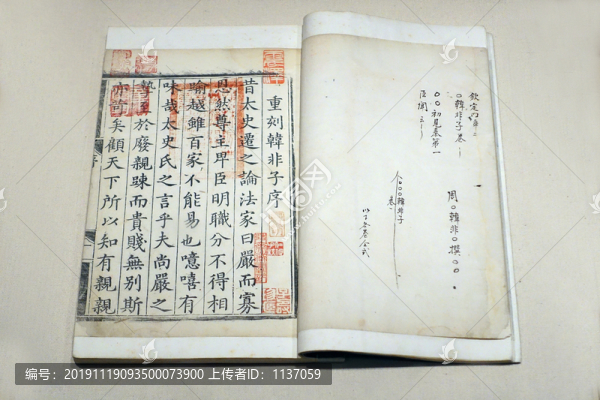 〇韓非子卷一
〇〇初見秦第一
周〇韓非〇撰〇〇
韓非子
以下各卷仝式
重刻韓非子序
昔太史遷之論法家曰嚴而寡
恩然尊主卑臣明職分不得相
踰越雖百家不能易也噫嘻有
味哉太史氏之言乎夫尚嚴之
勢至於廢親踈而貴賤無別斯
亦苛矣顧天下所以知有親親
序
编号：20191119093500073900 上传者ID：1137059